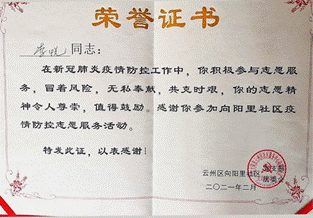 荣誉证书
同志:
在新冠肺炎疫情防控工作中，你积极参与志愿服
务，冒着风险，无私奉献，共克时艰，你的志愿精
神令人尊崇，值得鼓励。感谢你参加向阳里社区疫
情防控志愿服务活动。
特发此证，以表感谢！
云州区向阳里社区
二〇二一年二月